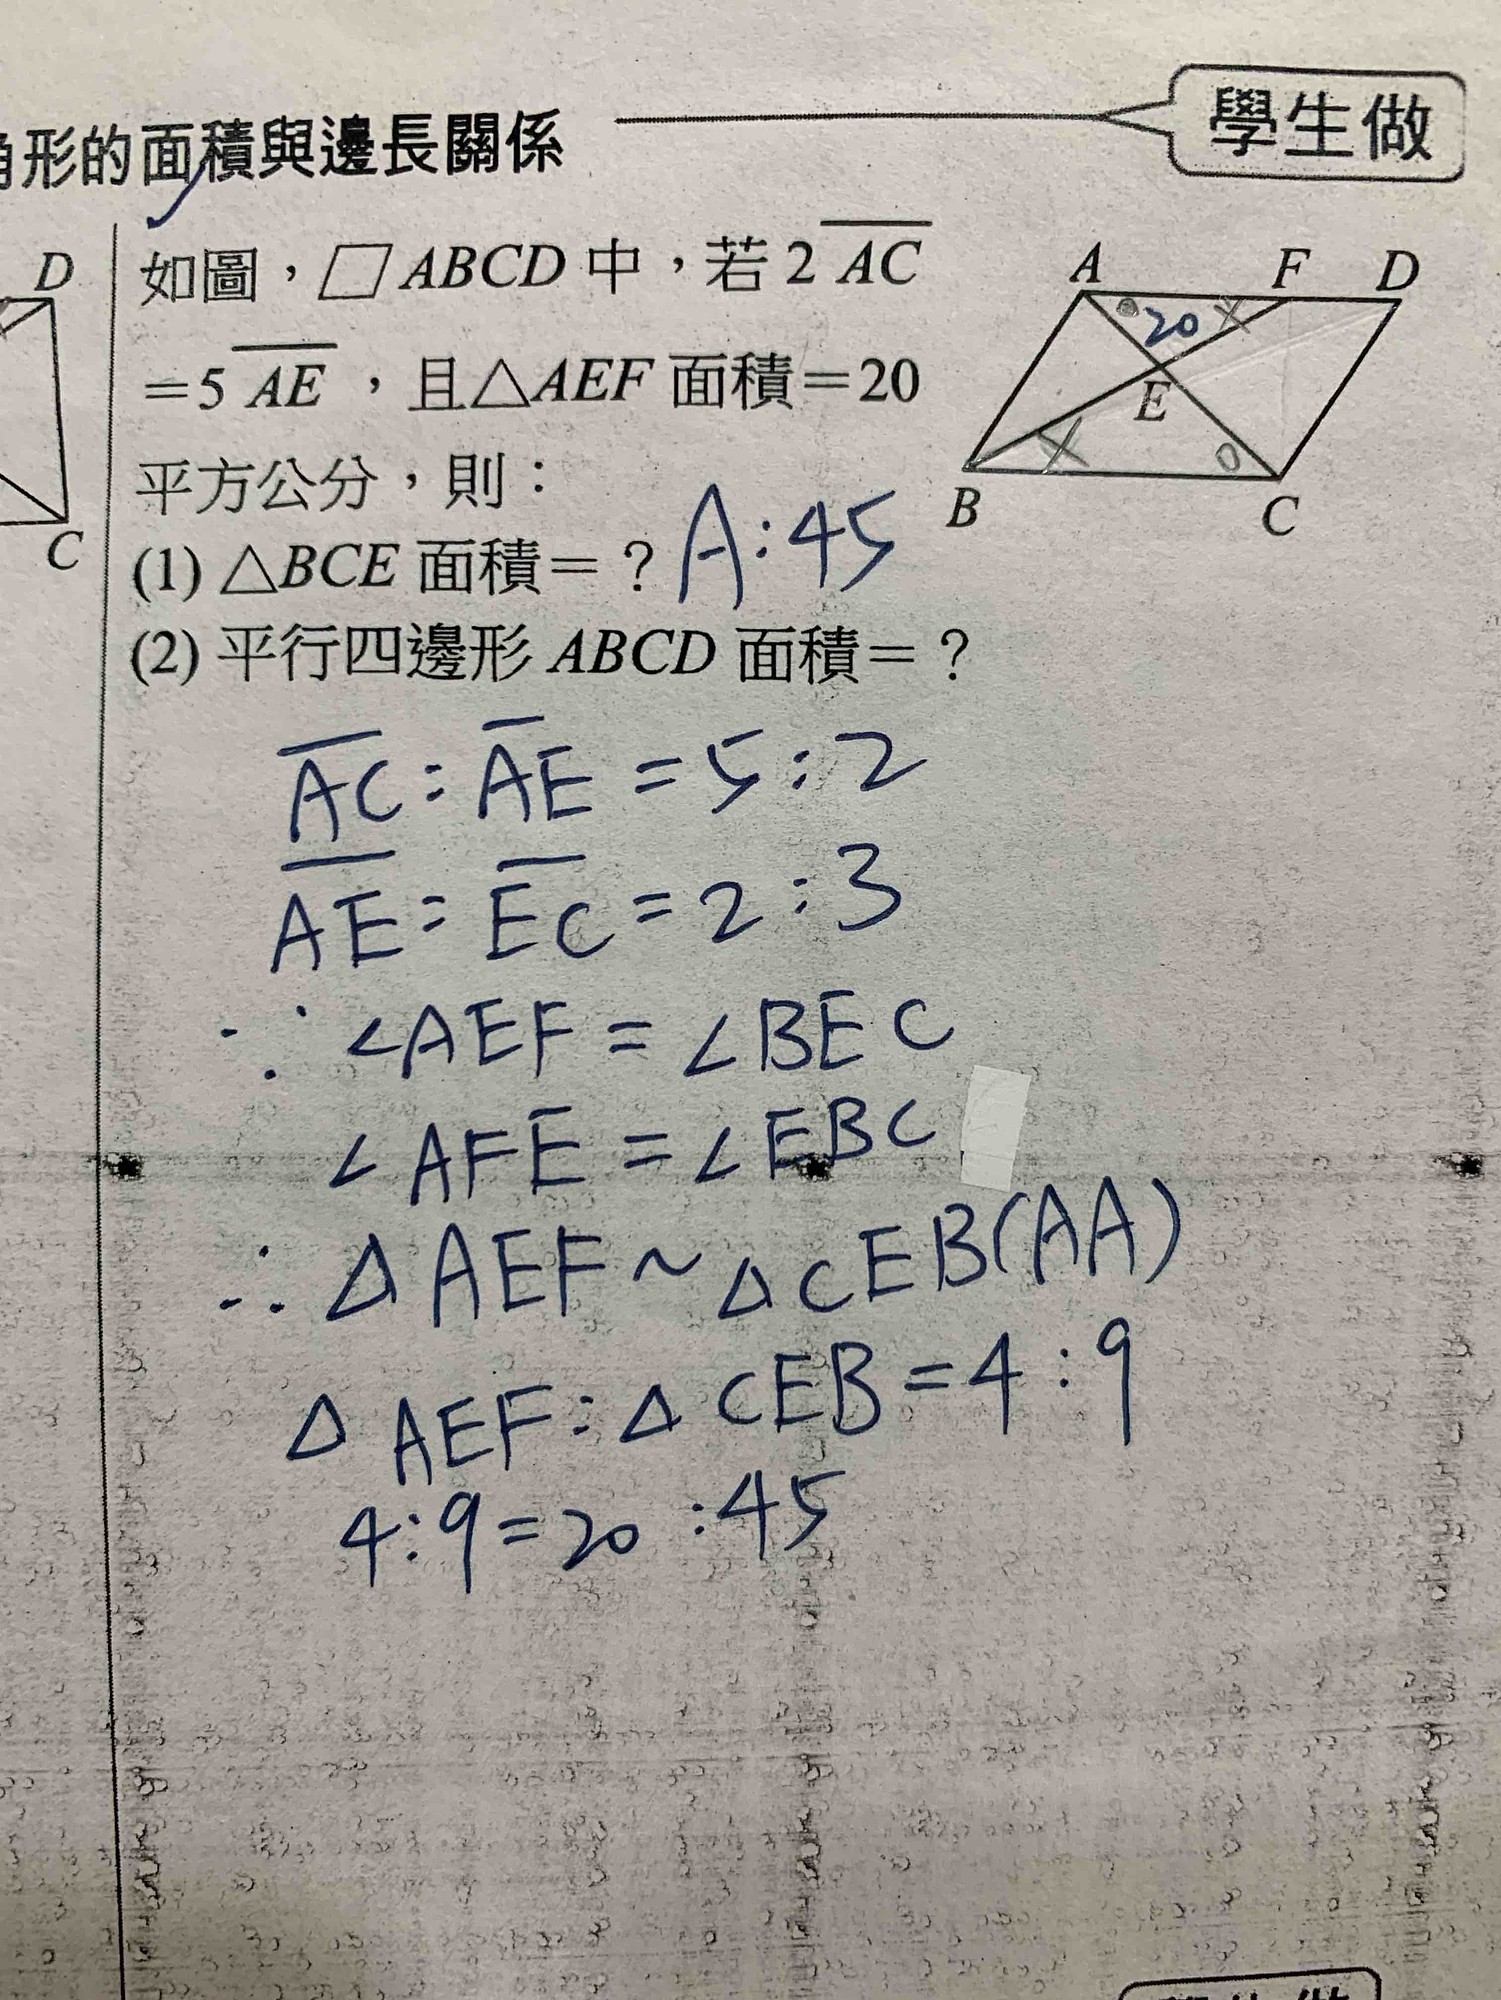 角形的面積與邊長關係
學生做
D
C
如圖，▱ABCD 中，若 2 AC
＝5 AE ，且△AEF 面積＝20
平方公分，則：
(1) △BCE 面積＝？ A:45
(2) 平行四邊形 ABCD 面積＝？
A F D
20
E
B C
AC : AE = 5 : 2
AE : EC = 2 : 3
∵ ∠AEF = ∠BEC
∠AFE = ∠EBC
∴ △AEF ~ △CEB (AA)
△AEF : △CEB = 4 : 9
4 : 9 = 20 : 45